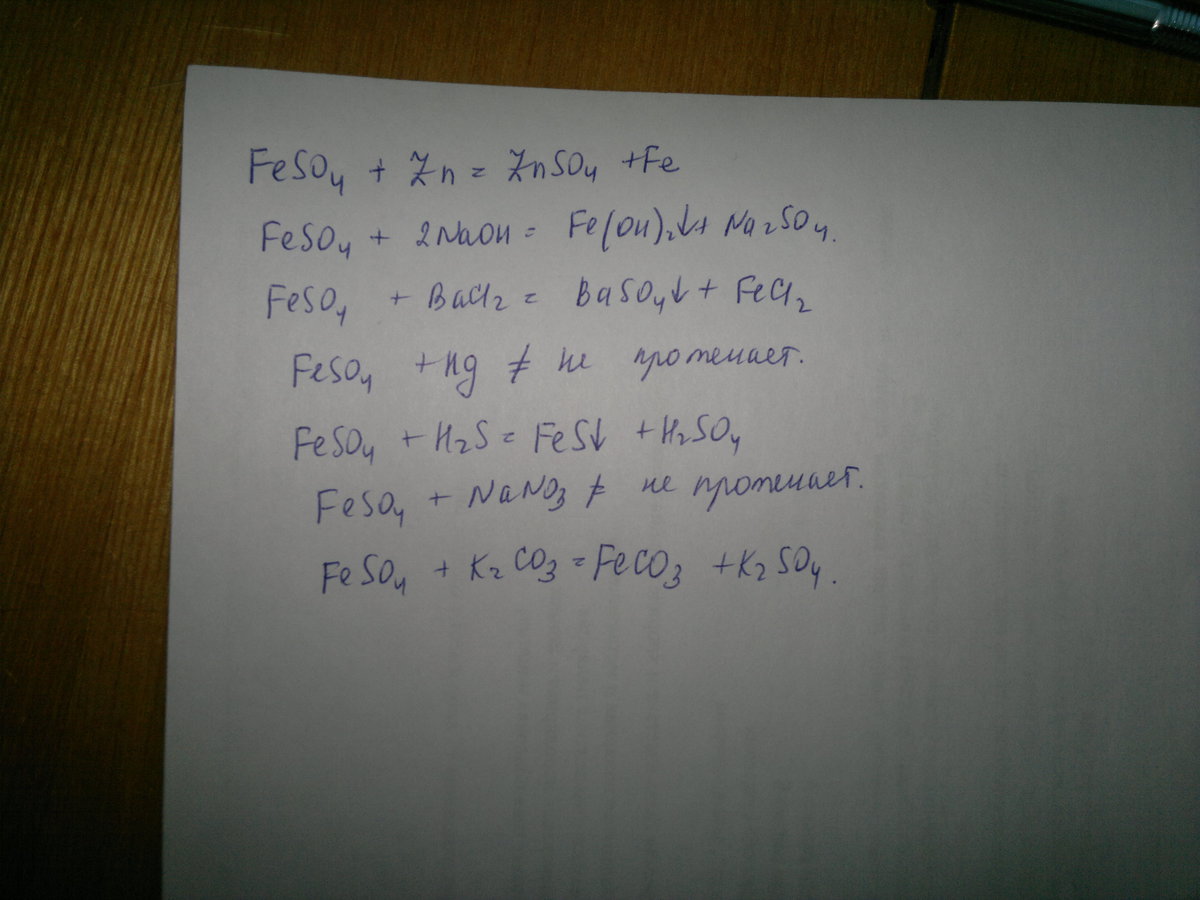 FeSO₄ + Zn = ZnSO₄ + Fe
FeSO₄ + 2NaOH = Fe(OH)₂↓ + Na₂SO₄.
FeSO₄ + BaCl₂ = BaSO₄↓ + FeCl₂
FeSO₄ + Hg ≠ не протекает.
FeSO₄ + H₂S = FeS↓ + H₂SO₄
FeSO₄ + NaNO₃ ≠ не протекает.
FeSO₄ + K₂CO₃ = FeCO₃ + K₂SO₄.